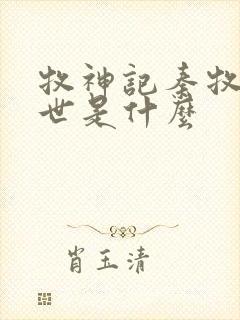 牧神記秦牧
世是什麼
肖玉清